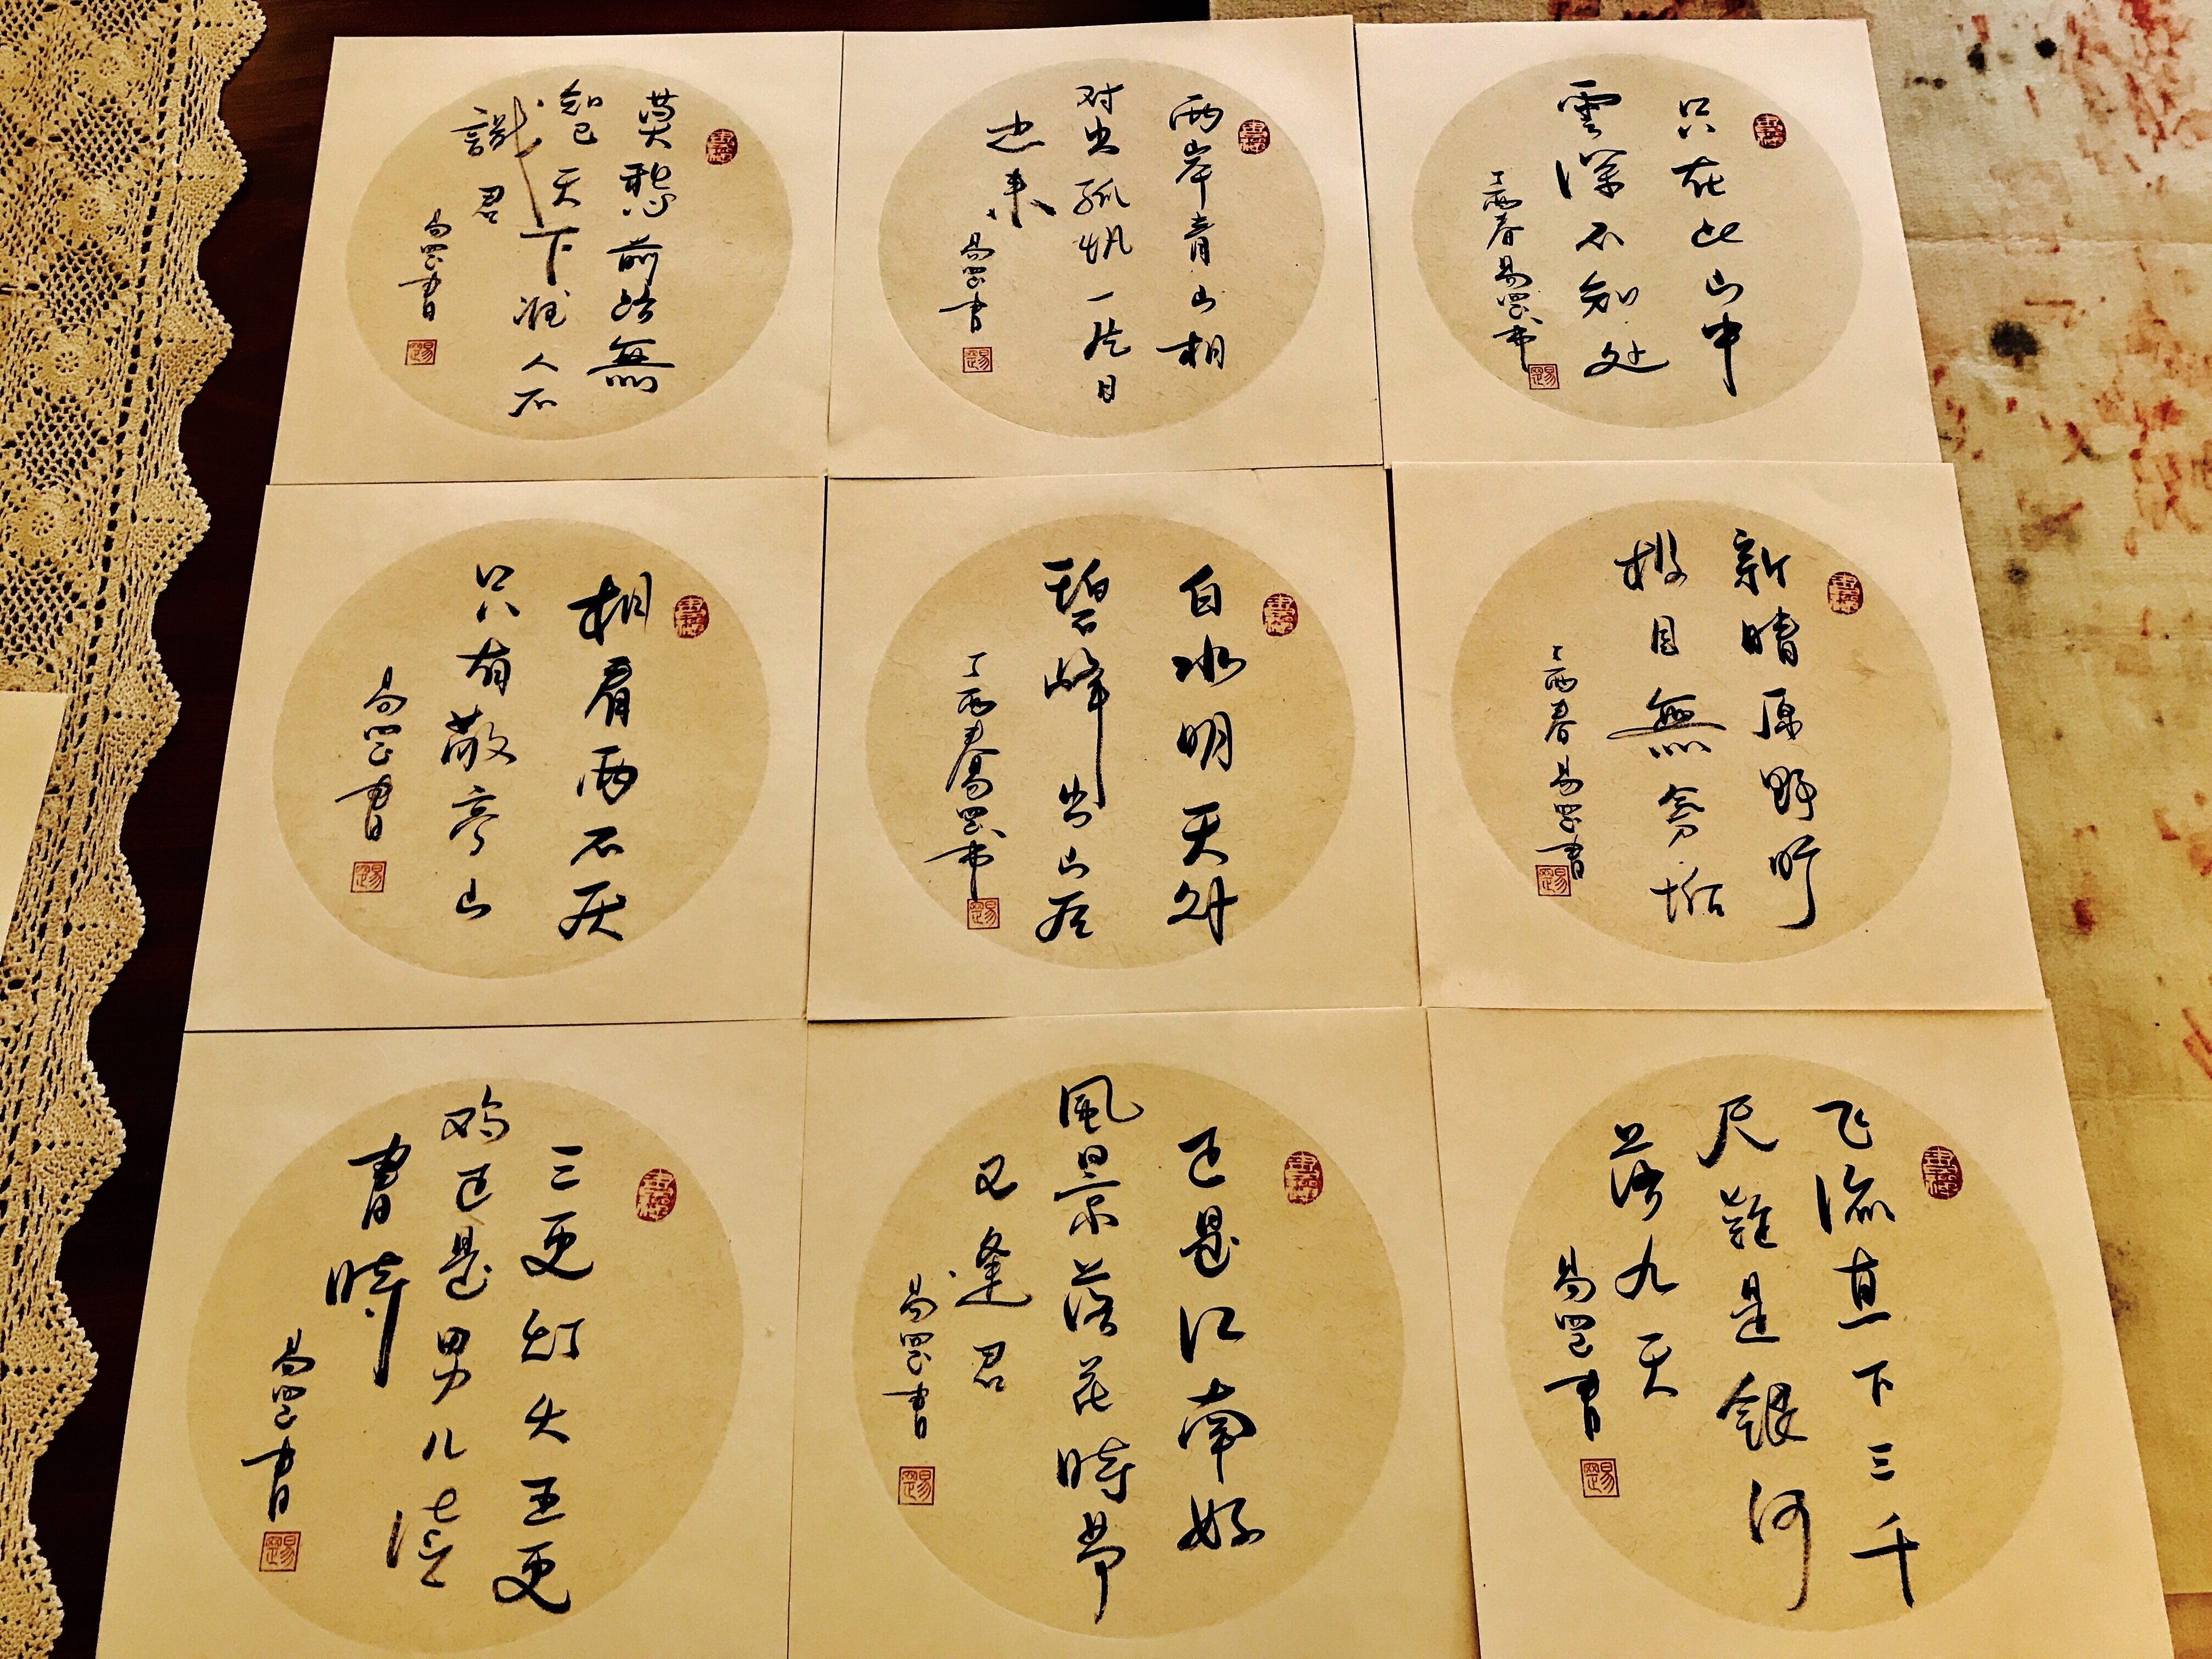 莫愁前路無
知己天下谁人不
識君
易罡書
两岸青山相
对出孤帆一片日
边来
易罡书
只在此山中
雲深不知处
丁酉春易罡书
相看两不厌
只有敬亭山
易罡書
白水明天外
碧峰出山后
丁酉春易罡书
新晴原野旷
极目無氛垢
丁酉春易罡書
三更灯火五更
鸡正是男儿读
書時
易罡書
正是江南好
風景落花時节
又逢君
易罡書
飞流直下三千
尺疑是銀河
落九天
易罡書